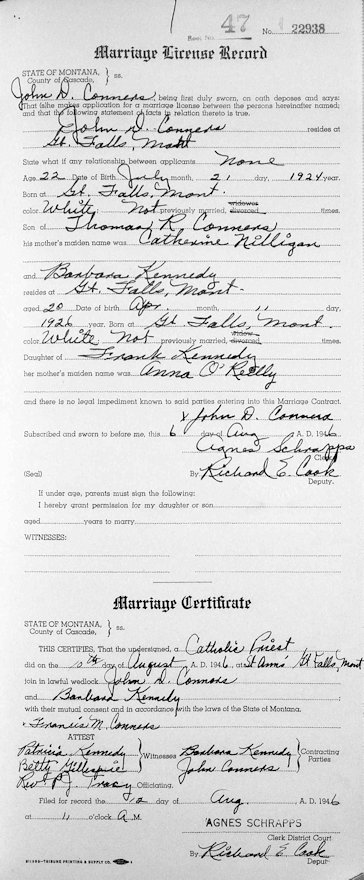 Rec. No. 47 No. 22938
Marriage License Record
STATE OF MONTANA, } ss.
County of Cascade,
John D. Conners, being first duly sworn, on oath deposes and says:
That (s)he makes application for a marriage license between the persons hereinafter named;
and that the following statement of facts in relation thereto is true.
John D. Conners resides at
Gt. Falls, Mont
State what if any relationship between applicants None
Age 22 Date of Birth July month, 21 day, 1924 year.
Born at Gt. Falls, Mont.
color White; Not previously married, widowed divorced times.
Son of Thomas R. Conners
his mother's maiden name was Catherine Nilligan
and Barbara Kennedy
resides at Gt. Falls, Mont.
aged 20 Date of birth Apr. month, 11 day,
1926 year. Born at Gt. Falls, Mont.
color White Not previously married, widow divorced times.
Daughter of Frank Kennedy
her mother's maiden name was Anna O'Reilly
and there is no legal impediment known to said parties entering into this Marriage Contract.
x John D. Conners
Subscribed and sworn to before me, this 6 day of Aug A. D. 1946
Agnes Schrapps
Clerk
(Seal) By Richard E. Cook
Deputy.
If under age, parents must sign the following:
I hereby grant permission for my daughter or son
aged years to marry
WITNESSES:
Marriage Certificate
STATE OF MONTANA, } ss.
County of Cascade,
THIS CERTIFIES, That the undersigned, a Catholic Priest
did on the 10th day of August A. D. 1946, at St Anns Gt Falls, Mont
join in lawful wedlock John D. Connors
and Barbara Kennedy
with their mutual consent and in accordance with the laws of the State of Montana.
x Francis M. Conners
ATTEST
Patricia Kennedy } Witnesses Barbara Kennedy } Contracting
Betty Gillespie John Conners Parties
Rev P. J. Tracy Officiating.
Filed for record the 12 day of Aug., A. D. 1946
at 11 o'clock A M.
AGNES SCHRAPPS
Clerk District Court
By Richard E. Cook
Deputy
TRIBUNE PRINTING & SUPPLY CO.